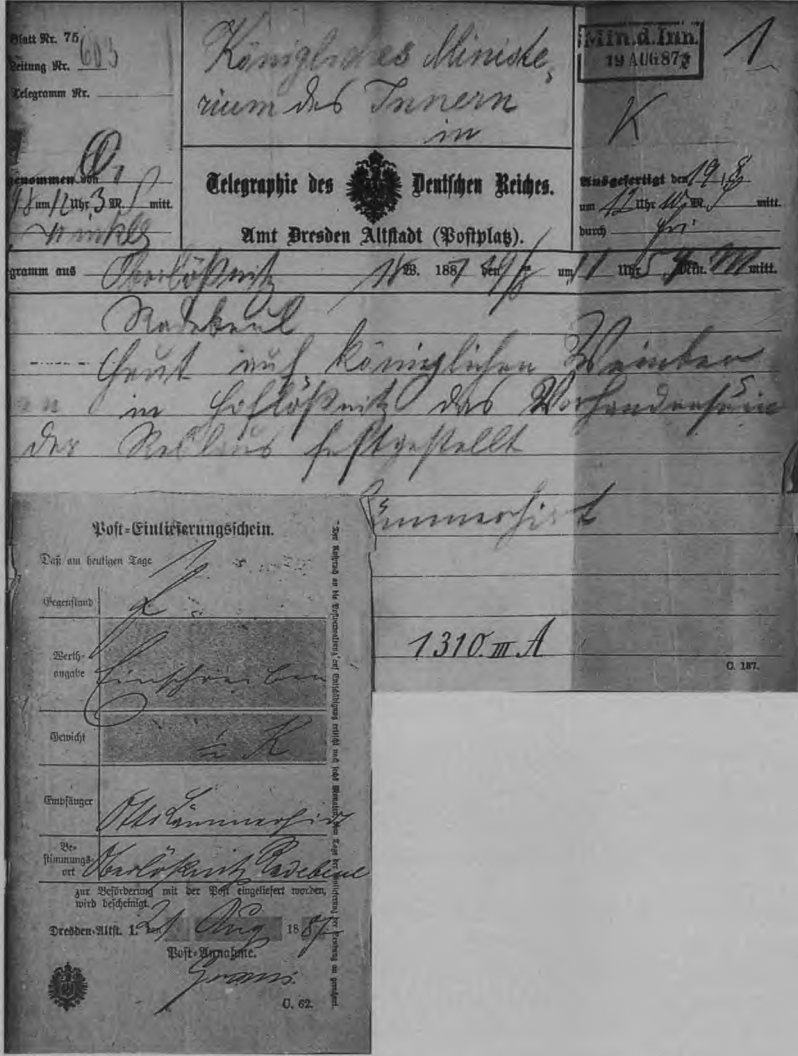 Blatt Nr. 75
Leitung Nr. 603
Telegramm Nr.
Königliches Ministe-
rium des Innern
in
Min.d.Inn.
19 AUG 87
1
K
Telegraphie des Deutschen Reiches.
Amt Dresden Altstadt (Postplatz).
genommen von
um 12 Uhr 3 M. mitt.
Ausgefertigt den 19/8
um 12 Uhr 10 M. mitt.
durch
gramm aus Oberlößnitz 18 W. 1887 den 19/8 um 11 Uhr 54 Min. M mitt.
Radebeul
Heut auf königlichen Weinber
in Hoflößnitz das Vorhandensein
der Reblaus festgestellt
Lämmerhirt
1310. III A
C. 187.
Post-Einlieferungsschein.
Daß am heutigen Tage
Gegenstand
Werth-
angabe Einschreiben
Gewicht K
Empfänger Otto Lämmerhirt
Be-
stimmungs-
ort Oberlößnitz Radebeul
zur Beförderung mit der Post eingeliefert worden,
wird bescheinigt.
Dresden-Altst. 1. 21 Aug 1887
Post-Annahme.
C. 62.